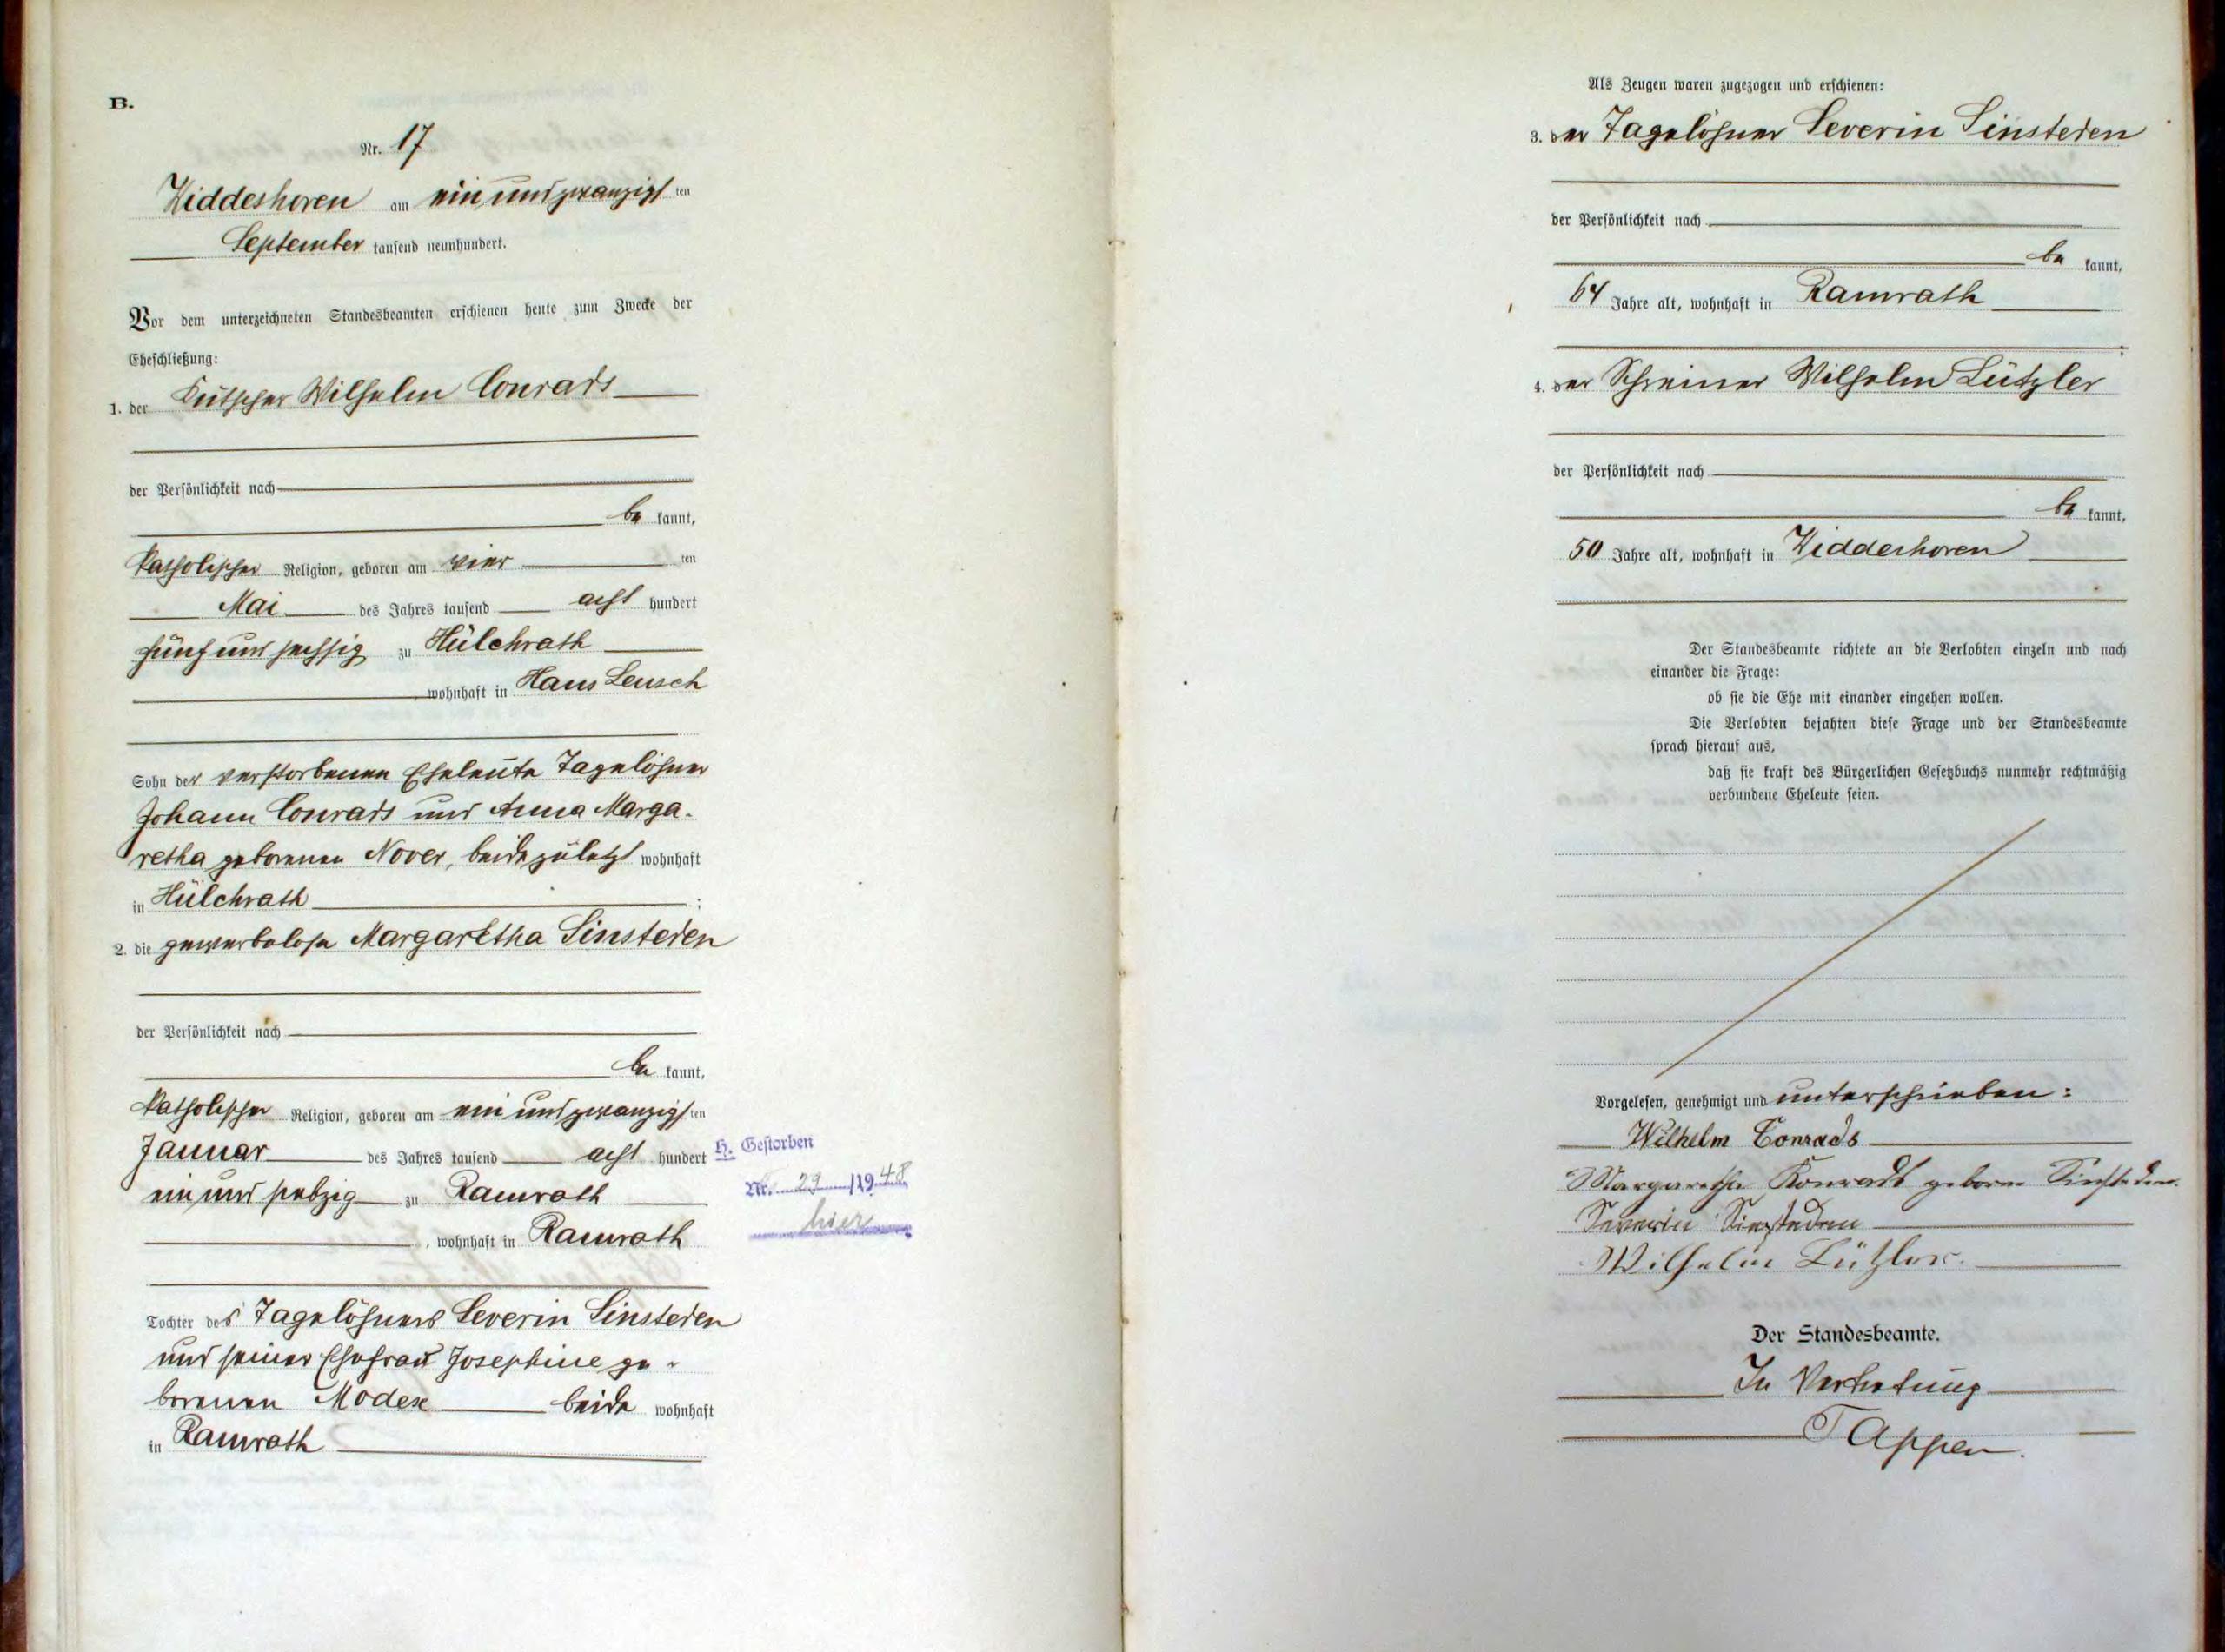 B.
Nr. 17
Widdeshoven am ein und zwanzigsten
September tausend neunhundert.
Vor dem unterzeichneten Standesbeamten erschienen heute zum Zwecke der
Eheschließung:
1. der Kutscher Wilhelm Conrads
der Persönlichkeit nach
bekannt,
katholischer Religion, geboren am vierten
Mai des Jahres tausend acht hundert
fünf und sechsig zu Hülchrath
, wohnhaft in Haus Leusch
Sohn der verstorbenen Eheleute Tagelöhner
Johann Conrads und Anna Marga-
retha geborenen Nover, beide zuletzt wohnhaft
in Hülchrath ;
2. die gewerbelose Margaretha Sinsteden
der Persönlichkeit nach
bekannt,
katholischer Religion, geboren am ein und zwanzigsten
Januar des Jahres tausend acht hundert
ein und siebzig zu Ramrath
, wohnhaft in Ramrath
Tochter des Tagelöhners Severin Sinsteden
und seiner Ehefrau Josephine ge-
borenen Moder beide wohnhaft
in Ramrath
H. Gestorben
Nr. 29 /1948
hier
Als Zeugen waren zugezogen und erschienen:
3. der Tagelöhner Severin Sinsteden
der Persönlichkeit nach
bekannt,
64 Jahre alt, wohnhaft in Ramrath
4. der Schreiner Wilhelm Lützler
der Persönlichkeit nach
bekannt,
50 Jahre alt, wohnhaft in Widdeshoven
Der Standesbeamte richtete an die Verlobten einzeln und nach
einander die Frage:
ob sie die Ehe mit einander eingehen wollen.
Die Verlobten bejahten diese Frage und der Standesbeamte
sprach hierauf aus,
daß sie kraft des Bürgerlichen Gesetzbuchs nunmehr rechtmäßig
verbundene Eheleute seien.
Vorgelesen, genehmigt und unterschrieben:
Wilhelm Conrads
Margaretha Konrads geborne Sinsteden.
Severin Sinsteden
Wilhelm Lützler.
Der Standesbeamte.
In Vertretung
Tappen.